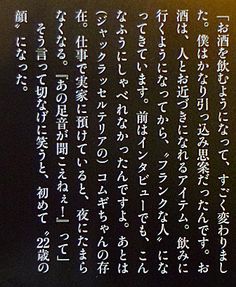 「お酒を飲むようになって、すごく変わりまし
た。僕はかなり引っ込み思案だったんです。お
酒は、人とお近づきになれるアイテム。飲みに
行くようになってから、〝フランクな人〟にな
ってきています。前はインタビューでも、こん
なふうにしゃべれなかったんですよ。あとは
(ジャックラッセルテリアの)コムギちゃんの存
在。仕事で実家に預けていると、夜にたまら
なくなる。『あの足音が聞こえねぇ!』って」
そう言って切なげに笑うと、初めて〝22歳の
顔〟になった。